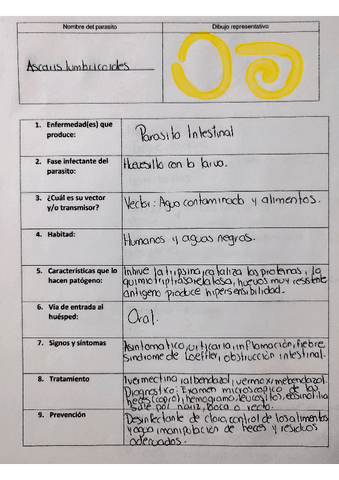 Nombre del parasito
Dibujo representativo
Ascaris lumbricoides
1. Enfermedad(es) que produce:
Parasito Intestinal
2. Fase infectante del parasito:
Huevsillo con la larva.
3. ¿Cuál es su vector y/o transmisor?
Vector: Agua contaminada y alimentos.
4. Habitad:
Humanos y aguas negras.
5. Características que lo hacen patógeno:
Inhive la tripsina, cataliza las proteinas, la
quimiotripsina, huevos muy resistente
antigeno produce hipersensibilidad.
6. Vía de entrada al huésped:
Oral.
7. Signos y síntomas
Asintomatico, urticaria, inflamación, fiebre
sindrome de Loeffler, obstrucción intestinal.
8. Tratamiento
Ivermectina, albendazol, vermox/mebendazol.
Diagnostico: Examen microscopico de las
heces (copro), hemograma, leucositos, eosinofilia
sale por nariz, boca o recto.
9. Prevención
Desinfectante de cloro, control de los alimentos
y agua, manipulación de heces y residuos
adecuados.